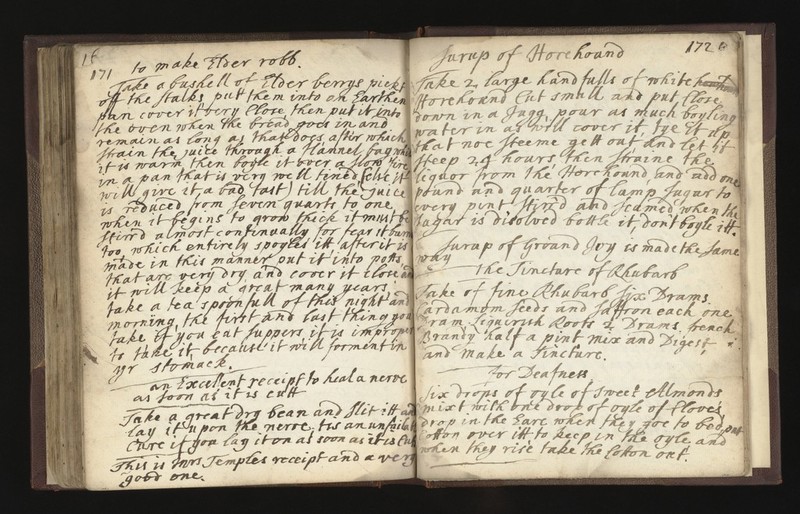 171
to make Elder robb.
Take a bushell of Elder berrys pickt
off the stalks putt them into an Earthen
pan cover it very Close, then put it into
the oven when the bread goes in and
remain as long as that does after which
strain the juice through a flannel
it is warm then boyle it over a slow fire
in a pan that is very well tined (else it
will give it a bad tast) till the juice
is reduced from seven quarts to one
when it begins to grow thick it must be
stirrd almost continually for fear it burn
too, which entirely spoyles itt after it is
made in this manner put it into potts,
that are very dry and cover it close and
it will keep a great many years,
take a tea spoonfull of this night and
morning, the first and last thing you
take if you eat suppers it is improper
to take it, because it will forment in
yr stomack.
an Excelent receipt to heal a nerve
as soon as it is cutt
Take a great dry bean and slit itt and
lay it upon the nerve, tis an unfailable
Cure if you lay it on as soon as it is Cut
This is Mrs. Temples receipt and a very
good one.
172
Surup of Horehound
Take 2 large handfulls of white
Horehound Cut small and put close
down in a Jugg, pour as much boyling
water in as will cover it, tye it up
that noe steeme gett out and let it
steep 24 hours, then straine the
liquor from the Horehound and add one
pound and quarter of lamp sugar to
every pint stir'd and scumed, when the
sugar is disolved bottle it, dont boyle itt.
Surup of Ground Ivy is made the same
way
The Tincture of Rhubarb
Take of fine Rhubarb six Drams
Cardamom seeds and saffron each one
Dram, Liquorish Roots 2 Drams, french
Brandy half a pint mix and Digest,
and make a Tincture.
For Deafness
Six drops of oyle of sweet Almonds
mixt with one drop of oyle of Cloves
drop in the Eare when they goe to bed, put
Cotton over itt to keep in the oyle, and
when they rise take the Cotton out.